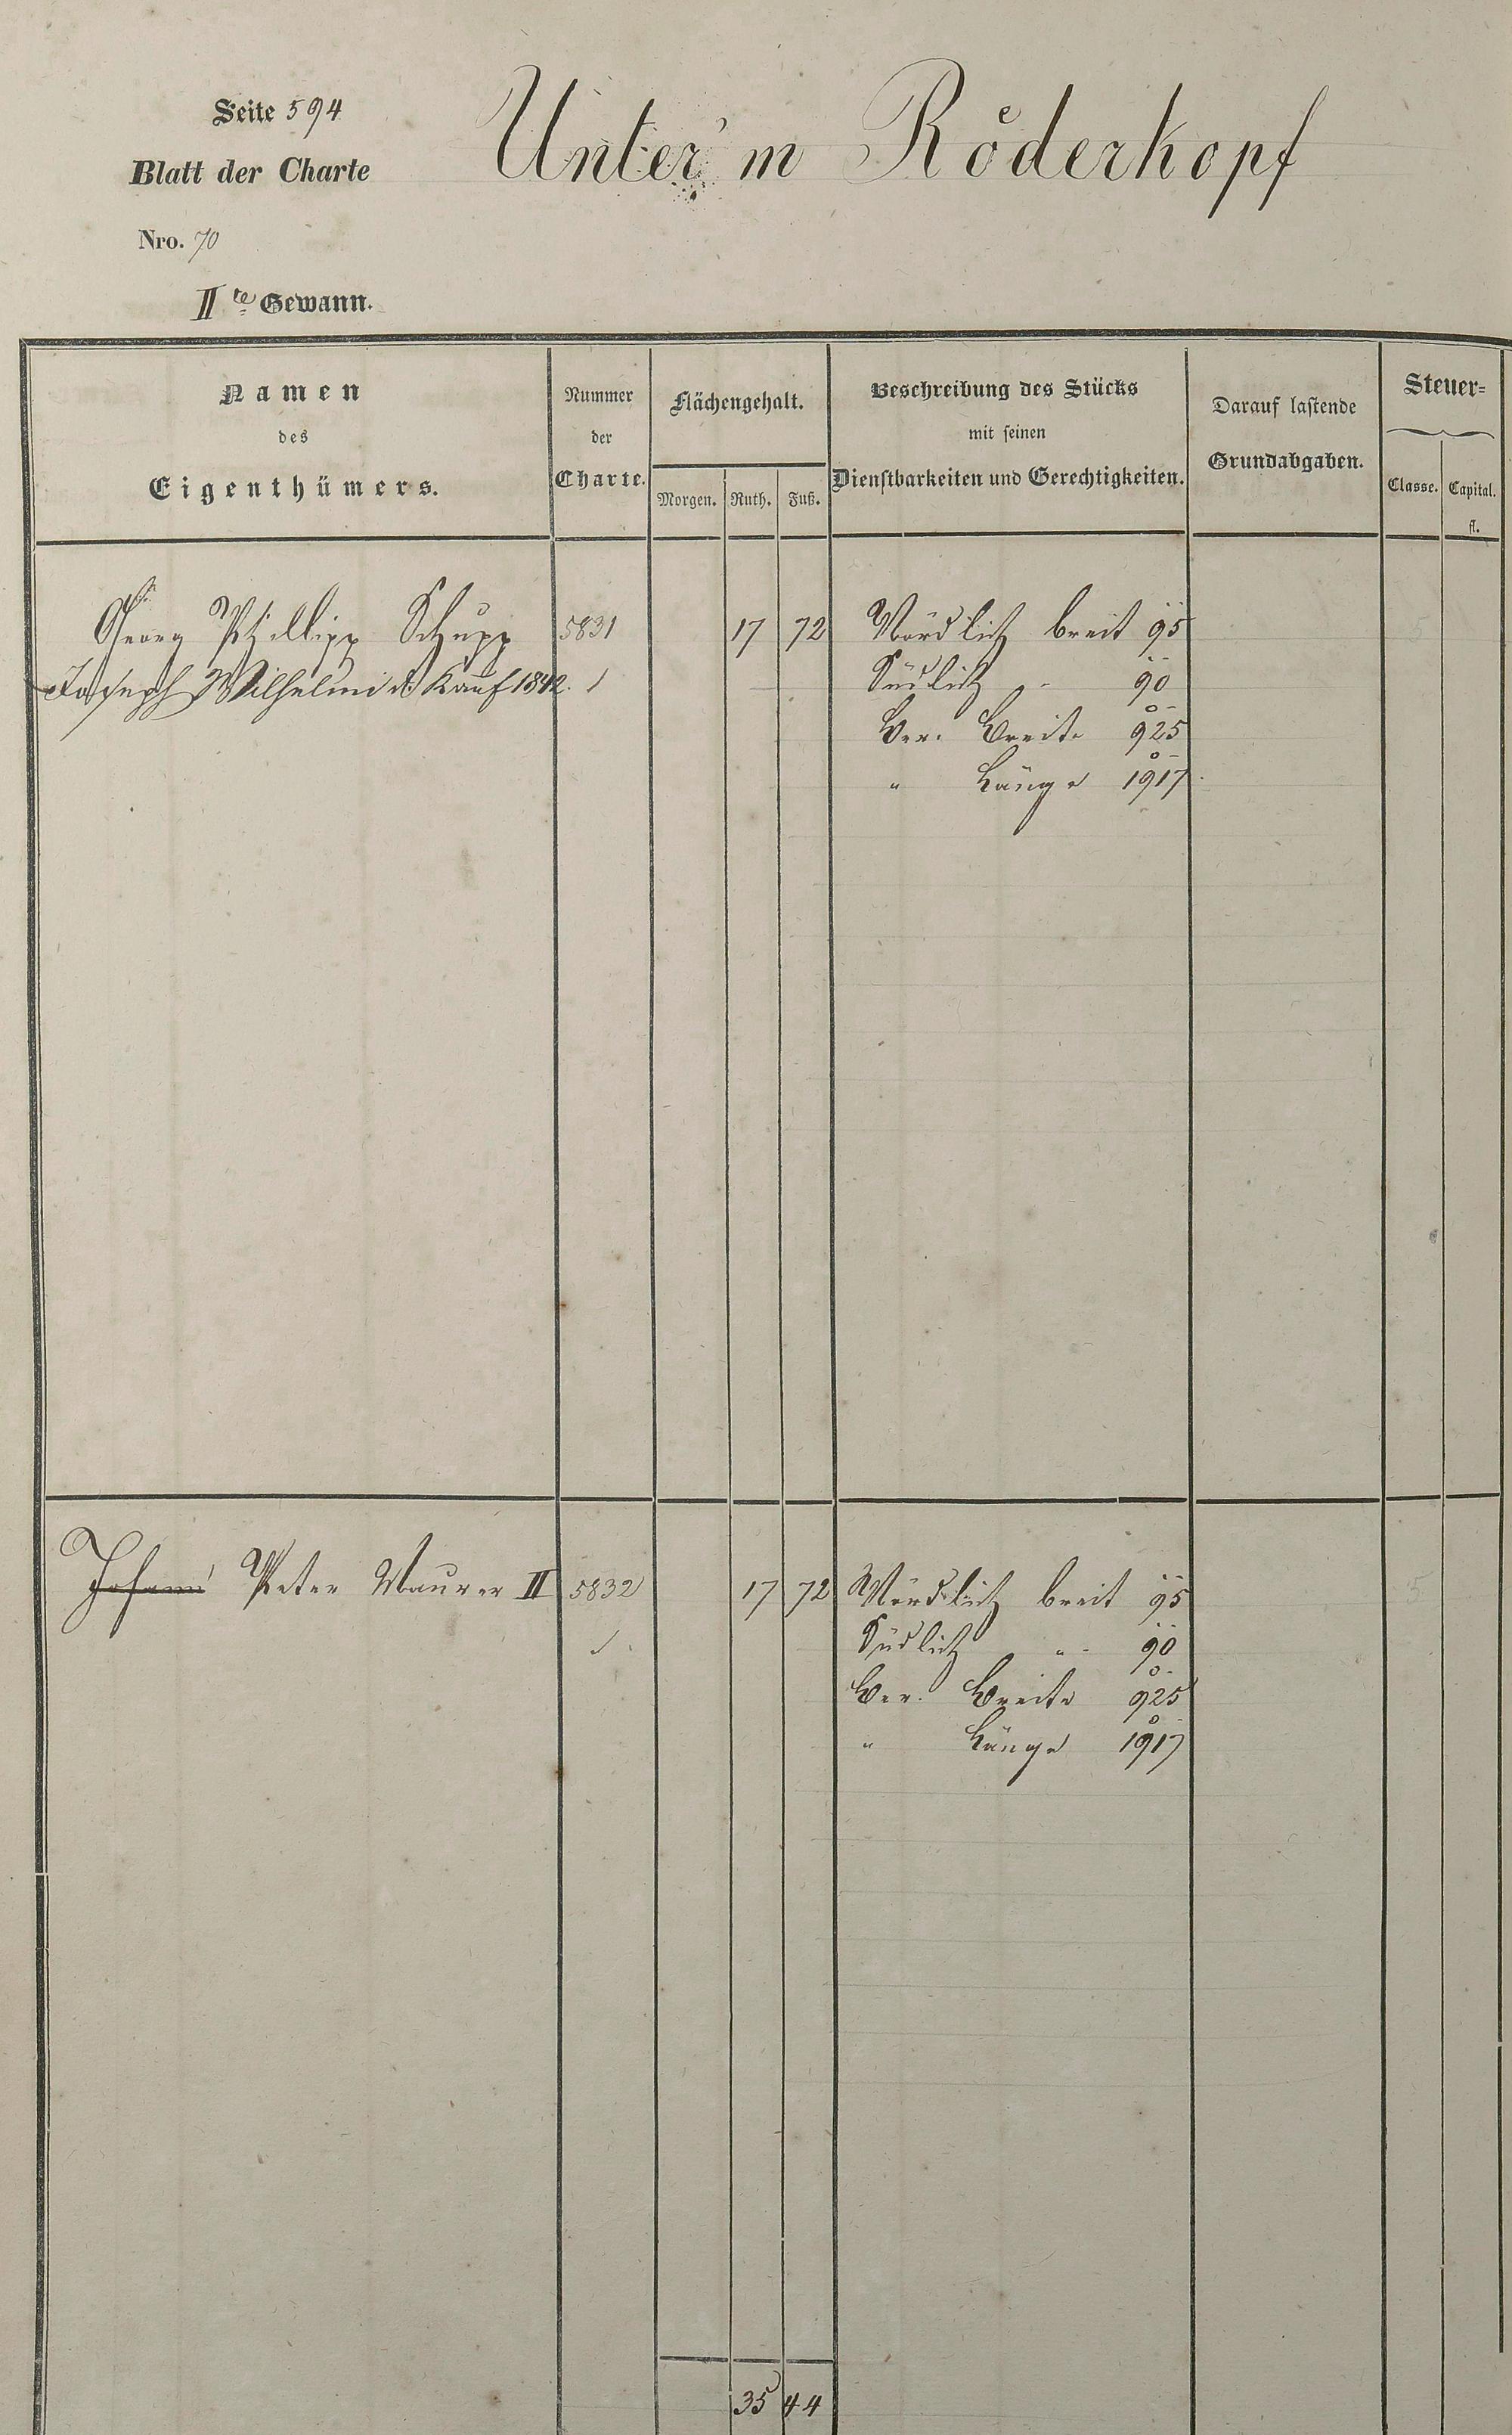 Seite 594
Unter'm Röderkopf
Blatt der Charte
Nro. 70
IIte Gewann.
Namen
des
Eigenthümers.
Nummer
der
Charte.
Flächengehalt.
Morgen. Ruth. Fuß.
Beschreibung des Stücks
mit seinen
Dienstbarkeiten und Gerechtigkeiten.
Darauf lastende
Grundabgaben.
Steuer=
Classe. Capital.
fl.
Georg Phillipp Schupp 5831 17 72 Nördlich breit 95 5
Joseph Wilhelmi Kauf 1842. Südlich " 90
Ber. Breite 925
" Länge 1917
Johann Peter Maurer II 5832 17 72 Nördlich breit 95 5
Südlich " 90
Ber. Breite 925
" Länge 1917
35 44